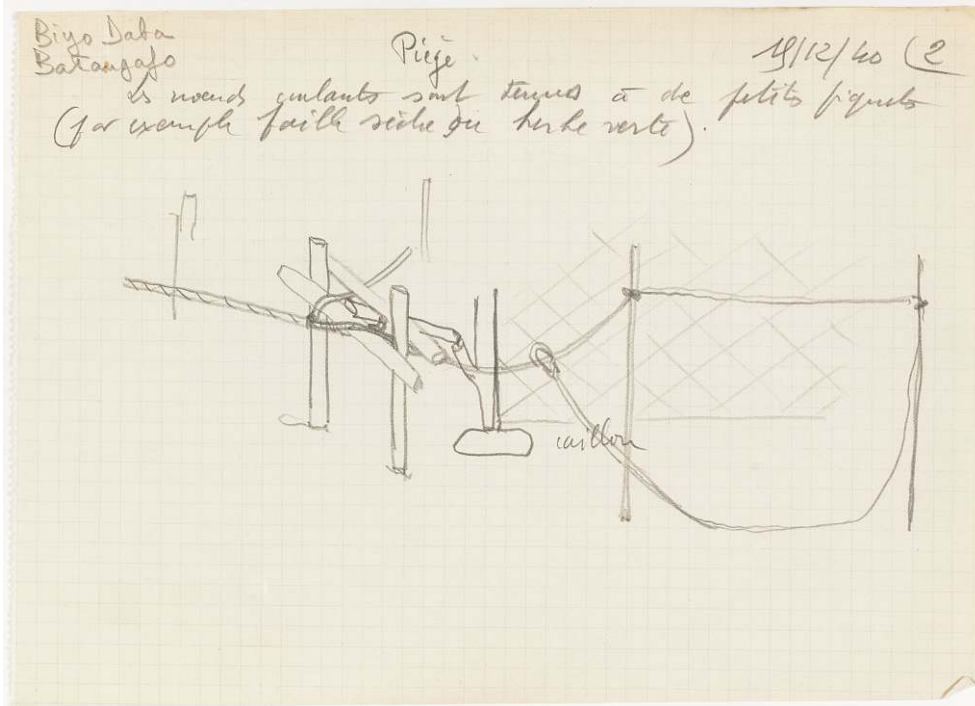 Biyo Daba
Batangafo
Piège.
19/12/40 (2
Les nœuds coulants sont tenus à de petits piquets
(par exemple paille sèche ou herbe verte).
caillou